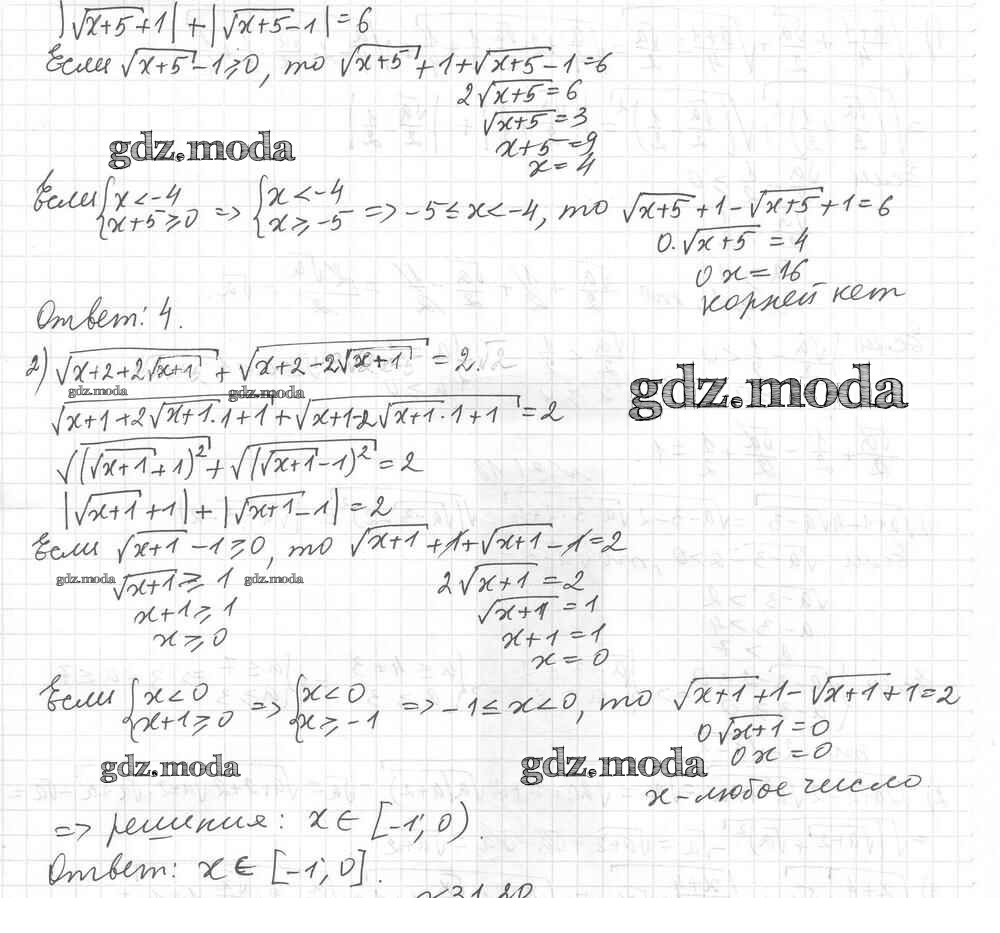 |√x+5+1| + |√x+5-1| = 6
Если √x+5-1⩾0, то √x+5+1+√x+5-1=6
2√x+5=6
√x+5=3
x+5=9
x=4
gdz.moda
Если {x<-4 x+5⩾0 => {x<-4 x⩾-5 => -5≤x<-4, то √x+5+1-√x+5+1=6
0·√x+5=4
0x=16
корней нет
Ответ: 4.
2) √x+2+2√x+1 + √x+2-2√x+1 = 2.
gdz.moda gdz.moda
gdz.moda
√x+1+2√x+1·1+1 + √x+1-2√x+1·1+1 = 2
√(√x+1+1)² + √(√x+1-1)² = 2
|√x+1+1| + |√x+1-1| = 2
Если √x+1-1⩾0, то √x+1+1+√x+1-1=2
gdz.moda √x+1⩾1 gdz.moda 2√x+1=2
x+1⩾1 √x+1=1
x⩾0 x+1=1
x=0
Если {x<0 x+1⩾0 => {x<0 x⩾-1 => -1≤x<0, то √x+1+1-√x+1+1=2
0√x+1=0
0x=0
gdz.moda gdz.moda
x-любое число
=> решения: x∈[-1; 0).
Ответ: x∈[-1; 0].